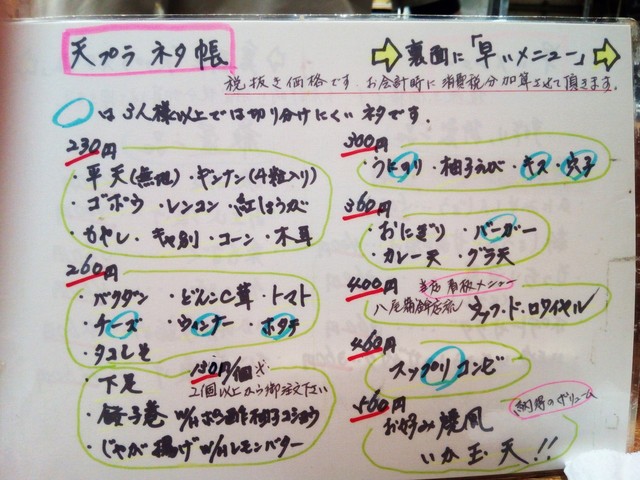 天プラ ネタ帳
裏面に「早いメニュー」
税抜き価格です。お会計時に消費税分加算させて頂きます。
は3人様以上では切り分けにくいネタです。
230円
・平天(無地)・ギンナン(4粒入り)
・ゴボウ・レンコン・紅しょうが
・もやし・キャベツ・コーン・木耳
260円
・バクダン・どんこ茸・トマト
・チーズ・ウィンナー・ホタテ
・タコしそ
・下足
130円/個
2個以上から御注文下さい
・餃子巻
・じゃが揚げ w/レモンバター
300円
・うにのり・柚子えび・キス・穴子
360円
・おにぎり・バーガー
・カレー天・グラ天
400円
当店看板メニュー
・ド・ロワイヤル
460円
コンビ
560円
納得のボリューム
お好み焼風
いか玉天!!